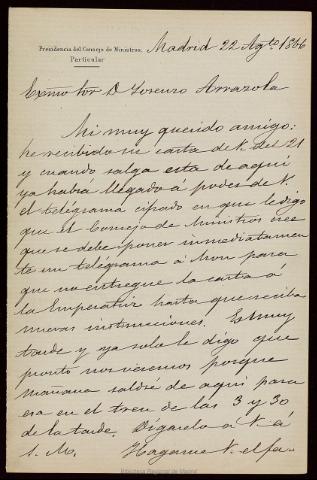 Presidencia del Consejo de Ministros.
Particular
Madrid 22 Agto 1866
Exmo Sor D Lorenzo Arrazola
Mi muy querido amigo:
he recibido su carta de V. del 21
y cuando salga esta de aquí
ya habrá llegado a poder de V.
el telégrama cifrado en que le digo
que el Consejo de Ministros cree
que se debe poner inmediatamen
te un telégrama á Mon para
que no entregue la carta á
la Emperatriz hasta que reciba
nuevas instrucciones. Es muy
tarde y ya solo le digo que
pronto nos veremos porque
mañana saldré de aquí para
esa en el tren de las 3 y 30
de la tarde. Dígaselo á V. á
S. M. Hagame V. el fa-
Biblioteca Regional de Madrid